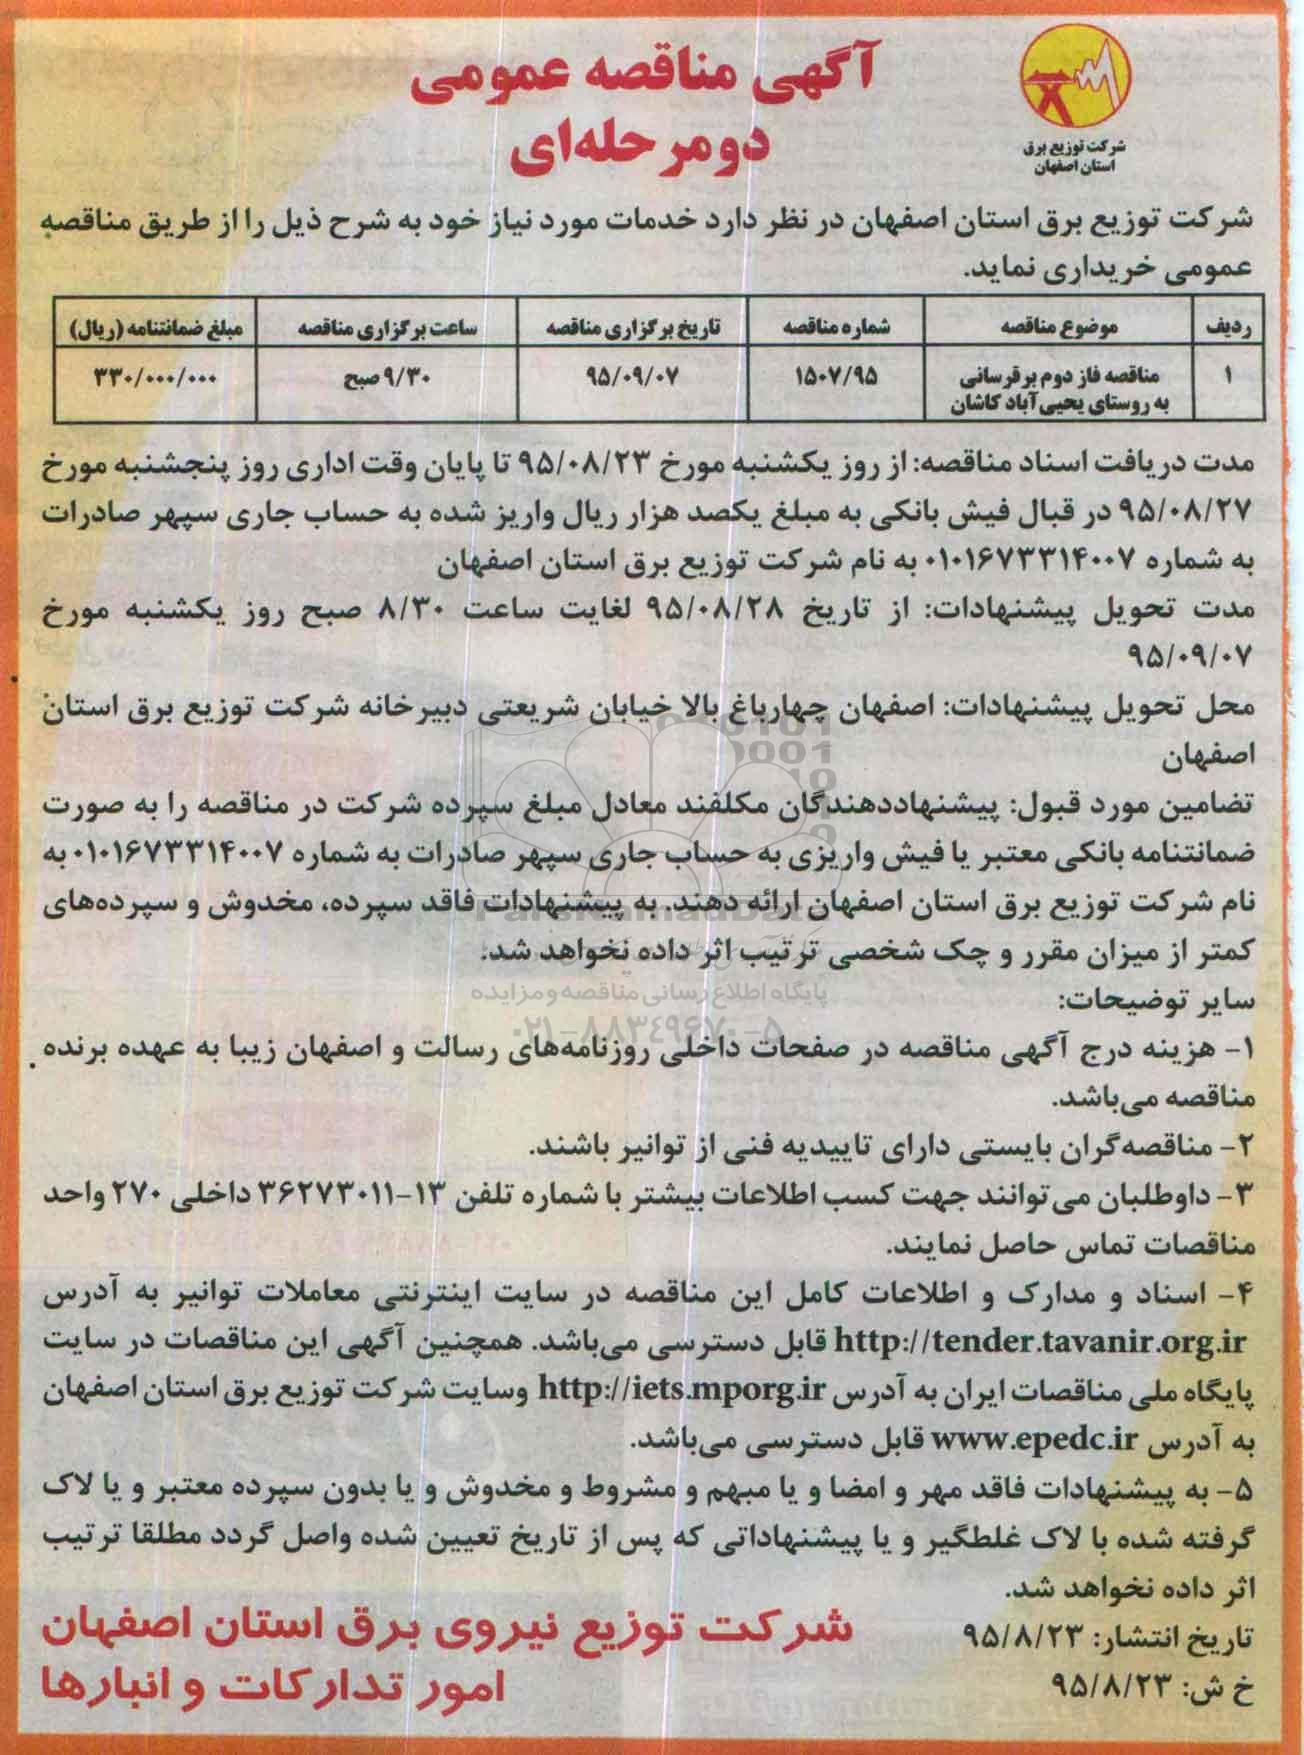 شرکت توزیع برق
استان اصفهان
آگهی مناقصه عمومی
دو مرحله‌ای
شرکت توزیع برق استان اصفهان در نظر دارد خدمات مورد نیاز خود به شرح ذیل را از طریق مناقصه
عمومی خریداری نماید.
ردیف موضوع مناقصه شماره مناقصه تاریخ برگزاری مناقصه ساعت برگزاری مناقصه مبلغ ضمانتنامه (ریال)
۱ مناقصه فاز دوم برقرسانی ۱۵۰۷/۹۵ ۹۵/۰۹/۰۷ ۹/۳۰ صبح ۳۳۰/۰۰۰/۰۰۰
به روستای یحیی‌آباد کاشان
مدت دریافت اسناد مناقصه: از روز یکشنبه مورخ ۹۵/۰۸/۲۳ تا پایان وقت اداری روز پنجشنبه مورخ
۹۵/۰۸/۲۷ در قبال فیش بانکی به مبلغ یکصد هزار ریال واریز شده به حساب جاری سپهر صادرات
به شماره ۰۱۰۱۶۷۳۳۱۴۰۰۷ به نام شرکت توزیع برق استان اصفهان
مدت تحویل پیشنهادات: از تاریخ ۹۵/۰۸/۲۸ لغایت ساعت ۸/۳۰ صبح روز یکشنبه مورخ
۹۵/۰۹/۰۷
محل تحویل پیشنهادات: اصفهان چهارباغ بالا خیابان شریعتی دبیرخانه شرکت توزیع برق استان
اصفهان
تضامین مورد قبول: پیشنهاددهندگان مکلفند معادل مبلغ سپرده شرکت در مناقصه را به صورت
ضمانتنامه بانکی معتبر یا فیش واریزی به حساب جاری سپهر صادرات به شماره ۰۱۰۱۶۷۳۳۱۴۰۰۷ به
نام شرکت توزیع برق استان اصفهان ارائه دهند. به پیشنهادات فاقد سپرده، مخدوش و سپرده‌های
کمتر از میزان مقرر و چک شخصی ترتیب اثر داده نخواهد شد.
پایگاه اطلاع رسانی مناقصه و مزایده
سایر توضیحات:
۰۲۱-۸۸۳۴۹۶۷۰-۵
۱- هزینه درج آگهی مناقصه در صفحات داخلی روزنامه‌های رسالت و اصفهان زیبا به عهده برنده
مناقصه می‌باشد.
۲- مناقصه‌گران بایستی دارای تاییدیه فنی از توانیر باشند.
۳- داوطلبان می‌توانند جهت کسب اطلاعات بیشتر با شماره تلفن ۱۳-۳۶۲۷۳۰۱۱ داخلی ۲۷۰ واحد
مناقصات تماس حاصل نمایند.
۴- اسناد و مدارک و اطلاعات کامل این مناقصه در سایت اینترنتی معاملات توانیر به آدرس
http://tender.tavanir.org.ir قابل دسترسی می‌باشد. همچنین آگهی این مناقصات در سایت
پایگاه ملی مناقصات ایران به آدرس http://iets.mporg.ir وسایت شرکت توزیع برق استان اصفهان
به آدرس www.epedc.ir قابل دسترسی می‌باشد.
۵- به پیشنهادات فاقد مهر و امضا و یا مبهم و مشروط و مخدوش و یا بدون سپرده معتبر و یا لاک
گرفته شده با لاک غلطگیر و یا پیشنهاداتی که پس از تاریخ تعیین شده واصل گردد مطلقا ترتیب
اثر داده نخواهد شد.
تاریخ انتشار: ۹۵/۸/۲۳
خ ش: ۹۵/۸/۲۳
شرکت توزیع نیروی برق استان اصفهان
امور تدارکات و انبارها